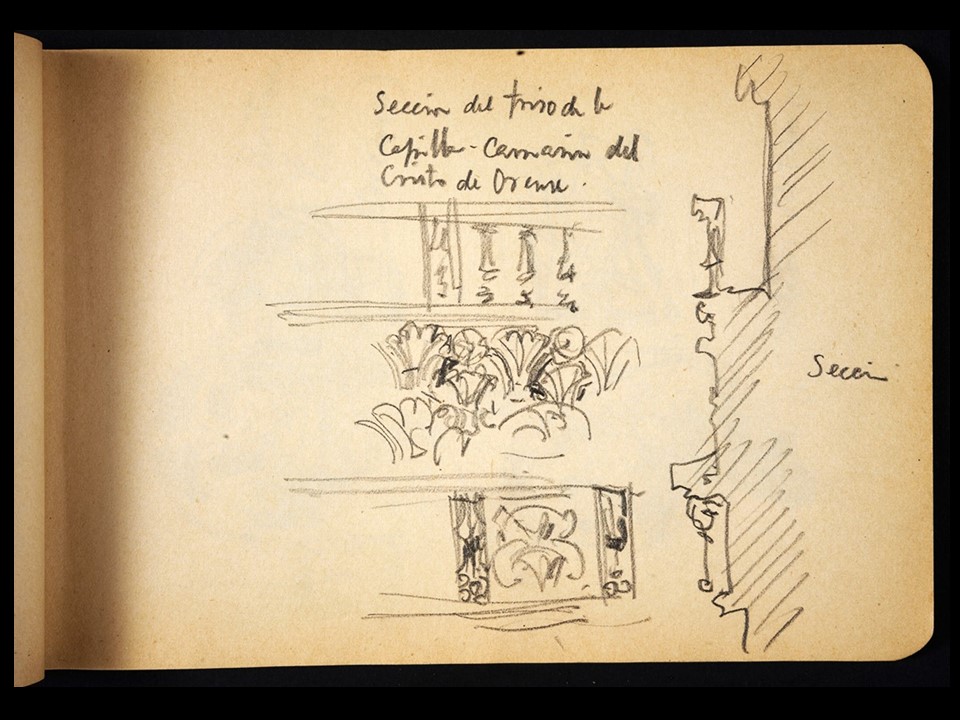 Sección del friso de la
Capilla-Camarin del
Cristo de Orense.
Sección